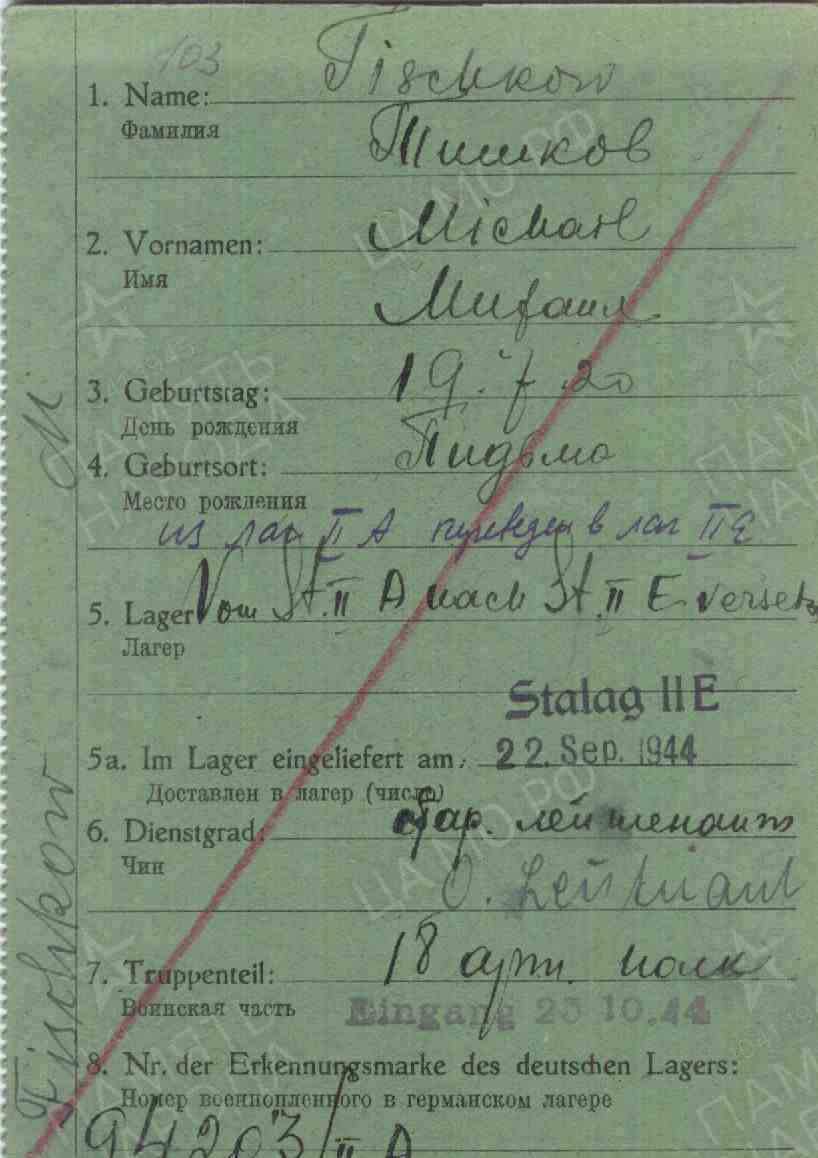 103
1. Name: Tischkow
Фамилия
Тишков
2. Vornamen: Michail
Имя
Михаил
3. Geburtstag: 19.7.20
День рождения
4. Geburtsort: Пидьма
Место рождения
из лаг II A переведен в лаг II E
5. Lager Vom St. II A nach St. II E versetzt
Лагер
Stalag II E
5a. Im Lager eingeliefert am: 22. Sep. 1944
Доставлен в лагер (число)
6. Dienstgrad: Стар. лейтенант
Чин
O. Leutnant
7. Truppenteil: 18 арт. полк
Воинская часть
Eingang 23 10.44
8. Nr. der Erkennungsmarke des deutschen Lagers:
Номер военнопленного в германском лагере
94203/II A
Tischkow M
ЦАМО.РФ
ПАМЯТЬ НАРОДА